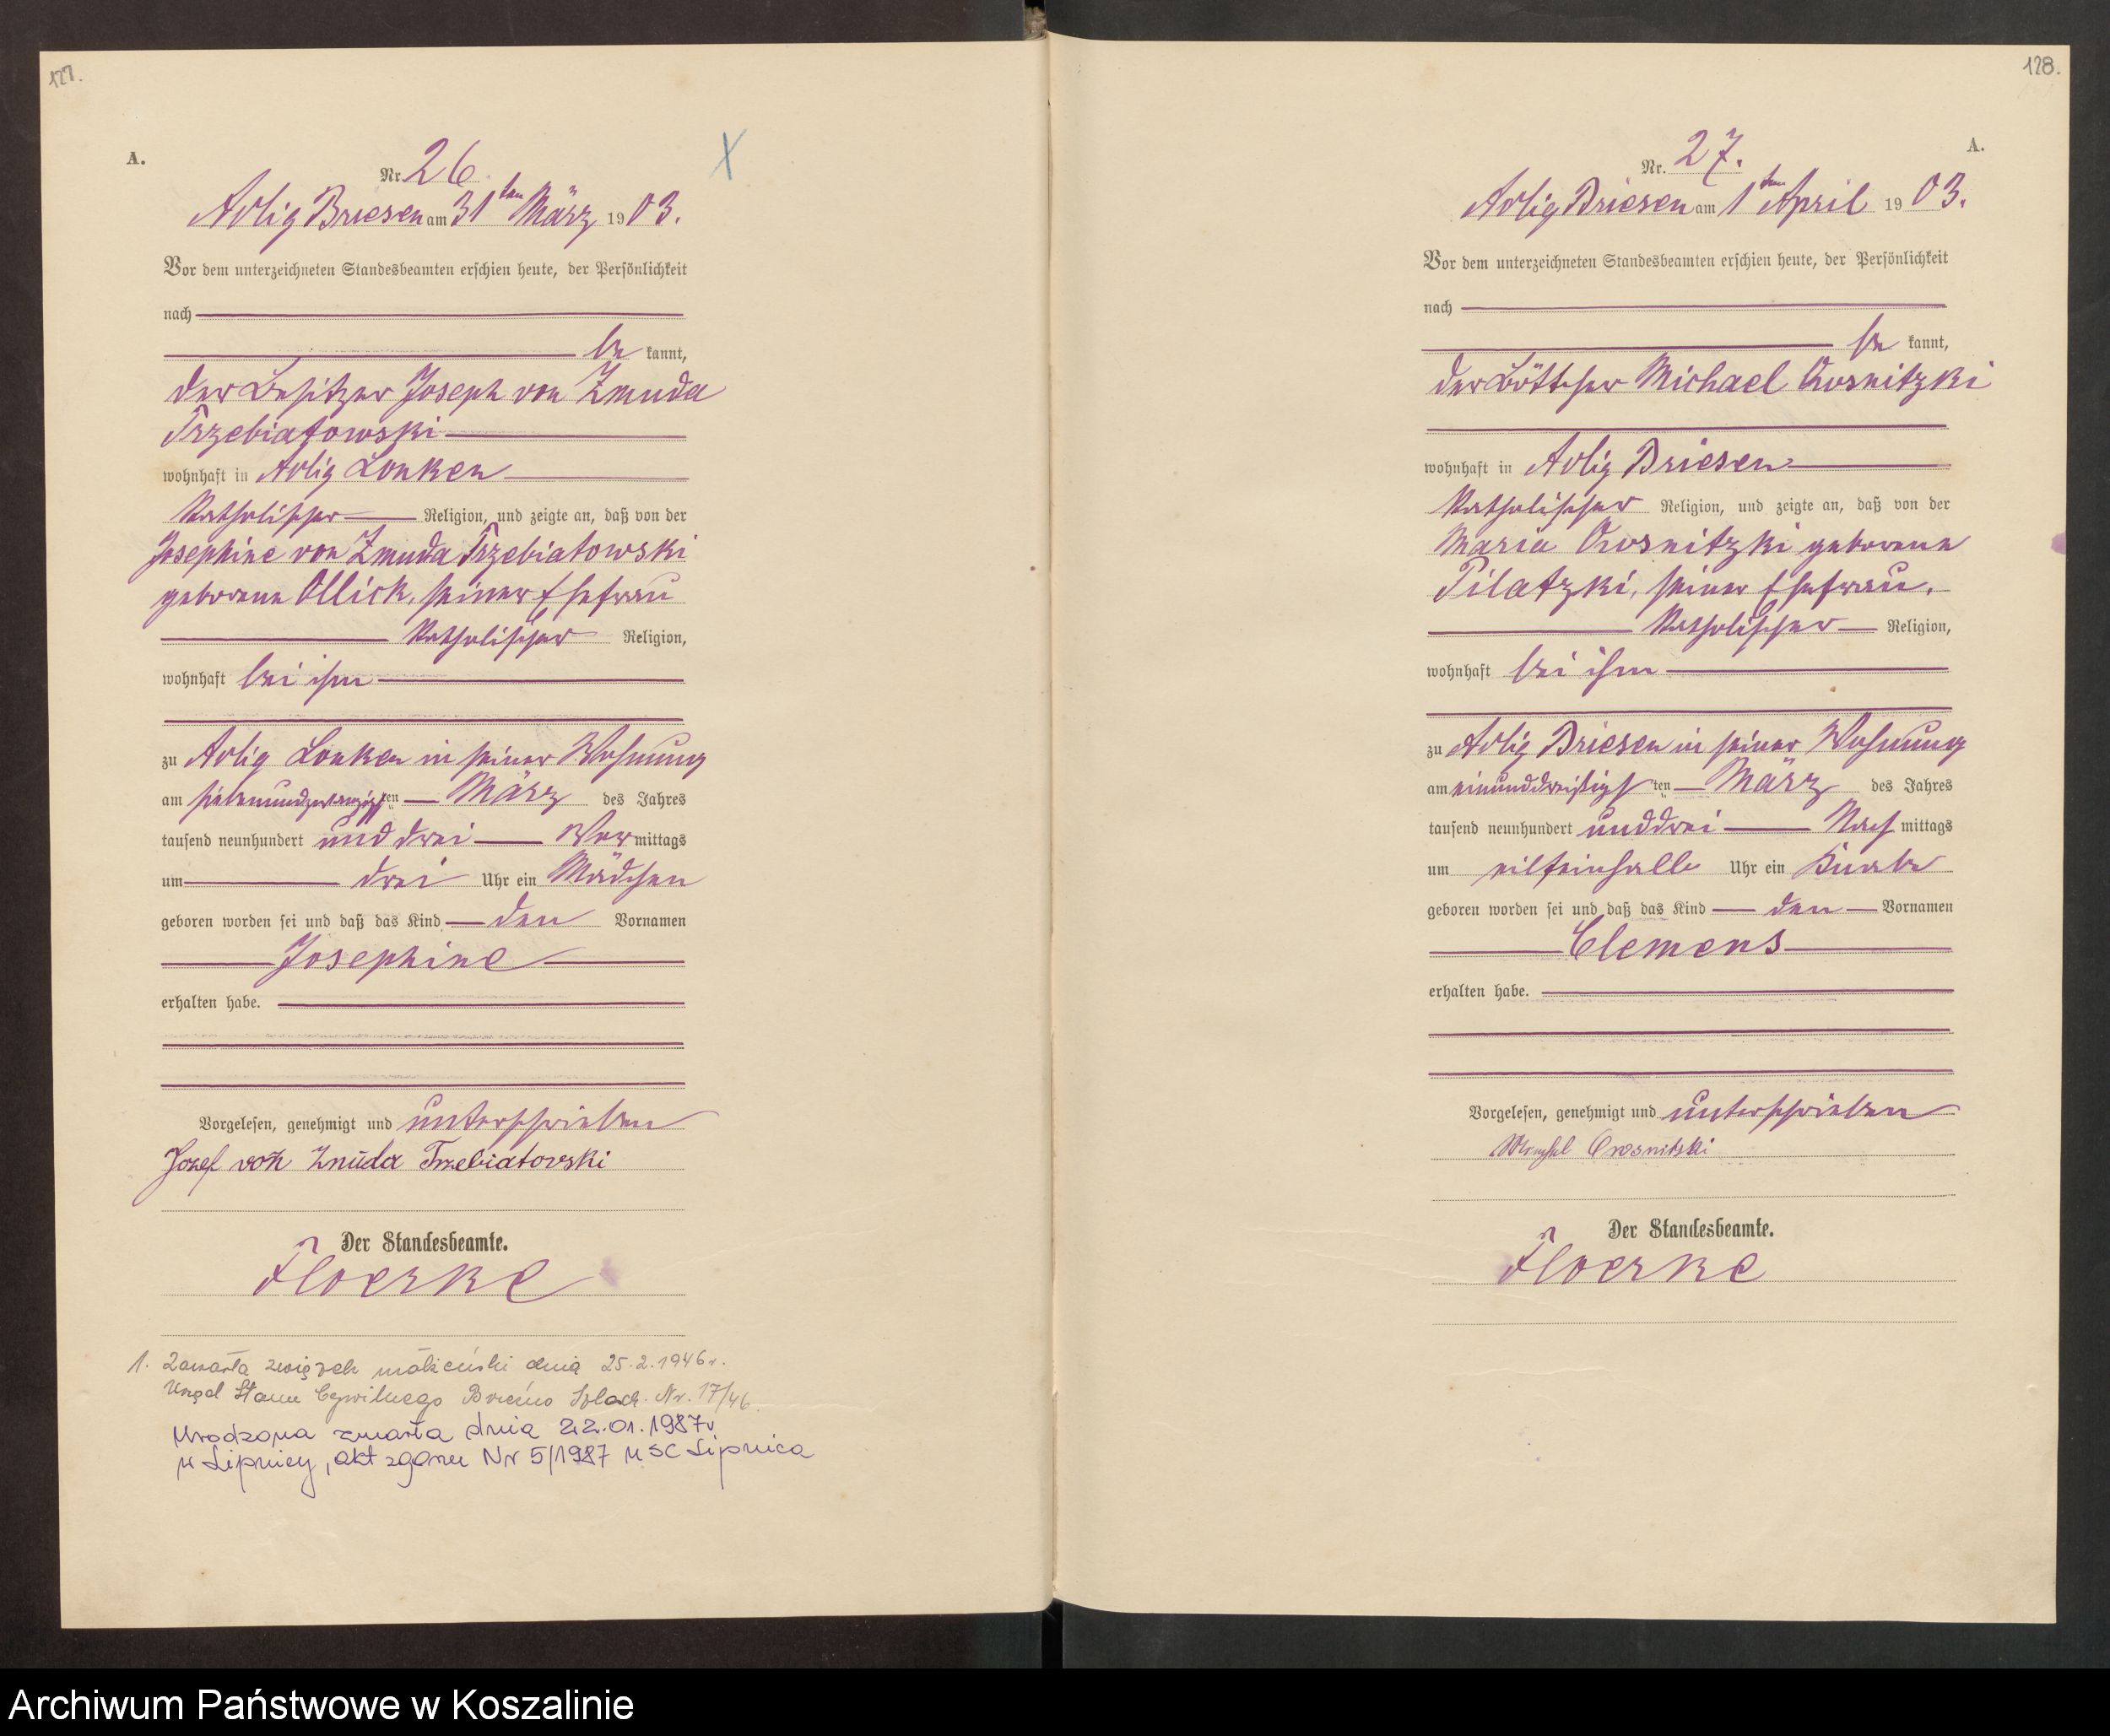 127.
A.
Nr. 26.
Adlig Briesen am 31ten März 1903.
Vor dem unterzeichneten Standesbeamten erschien heute, der Persönlichkeit
nach
be kannt,
der Besitzer Joseph von Zmuda
Trzebiatowski
wohnhaft in Adlig Lonken
katholischer Religion, und zeigte an, daß von der
Josephine von Zmuda Trzebiatowski
geborene Ollick, seiner Ehefrau
katholischer Religion,
wohnhaft bei ihm
zu Adlig Lonken in seiner Wohnung
am siebenundzwanzigsten März des Jahres
tausend neunhundert und drei Vormittags
um drei Uhr ein Mädchen
geboren worden sei und daß das Kind den Vornamen
Josephine
erhalten habe.
Vorgelesen, genehmigt und unterschrieben
Jozef von Zmuda Trzebiatowski
Der Standesbeamte.
Floerke
1. Zawarła związek małżeński dnia 25.2.1946 r.
Urząd Stanu Cywilnego Brzeźno Szlach. Nr. 17/46.
Urodzona zmarła dnia 22.01.1987r
w Lipnicy, akt zgonu Nr 5/1987 USC Lipnica
128.
A.
Nr. 27.
Adlig Briesen am 1ten April 1903.
Vor dem unterzeichneten Standesbeamten erschien heute, der Persönlichkeit
nach
be kannt,
der Böttcher Michael
wohnhaft in Adlig Briesen
katholischer Religion, und zeigte an, daß von der
Maria geborene
Pilatzki, seiner Ehefrau,
katholischer Religion,
wohnhaft bei ihm
zu Adlig Briesen in seiner Wohnung
am einunddreißigsten März des Jahres
tausend neunhundert und drei Nachmittags
um eilfeinhalb Uhr ein Knabe
geboren worden sei und daß das Kind den Vornamen
Clemens
erhalten habe.
Vorgelesen, genehmigt und unterschrieben
Der Standesbeamte.
Floerke
Archiwum Państwowe w Koszalinie